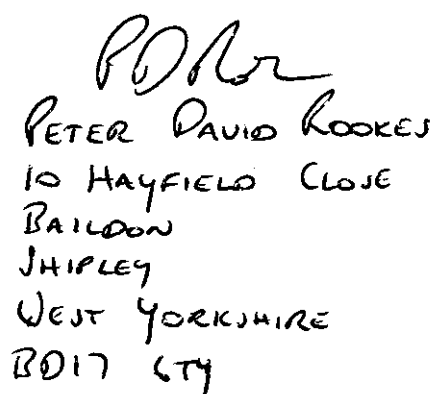 PETER DAVID ROOKES
10 HAYFIELD CLOSE
BAILDON
SHIPLEY
WEST YORKSHIRE
BD17 6TY